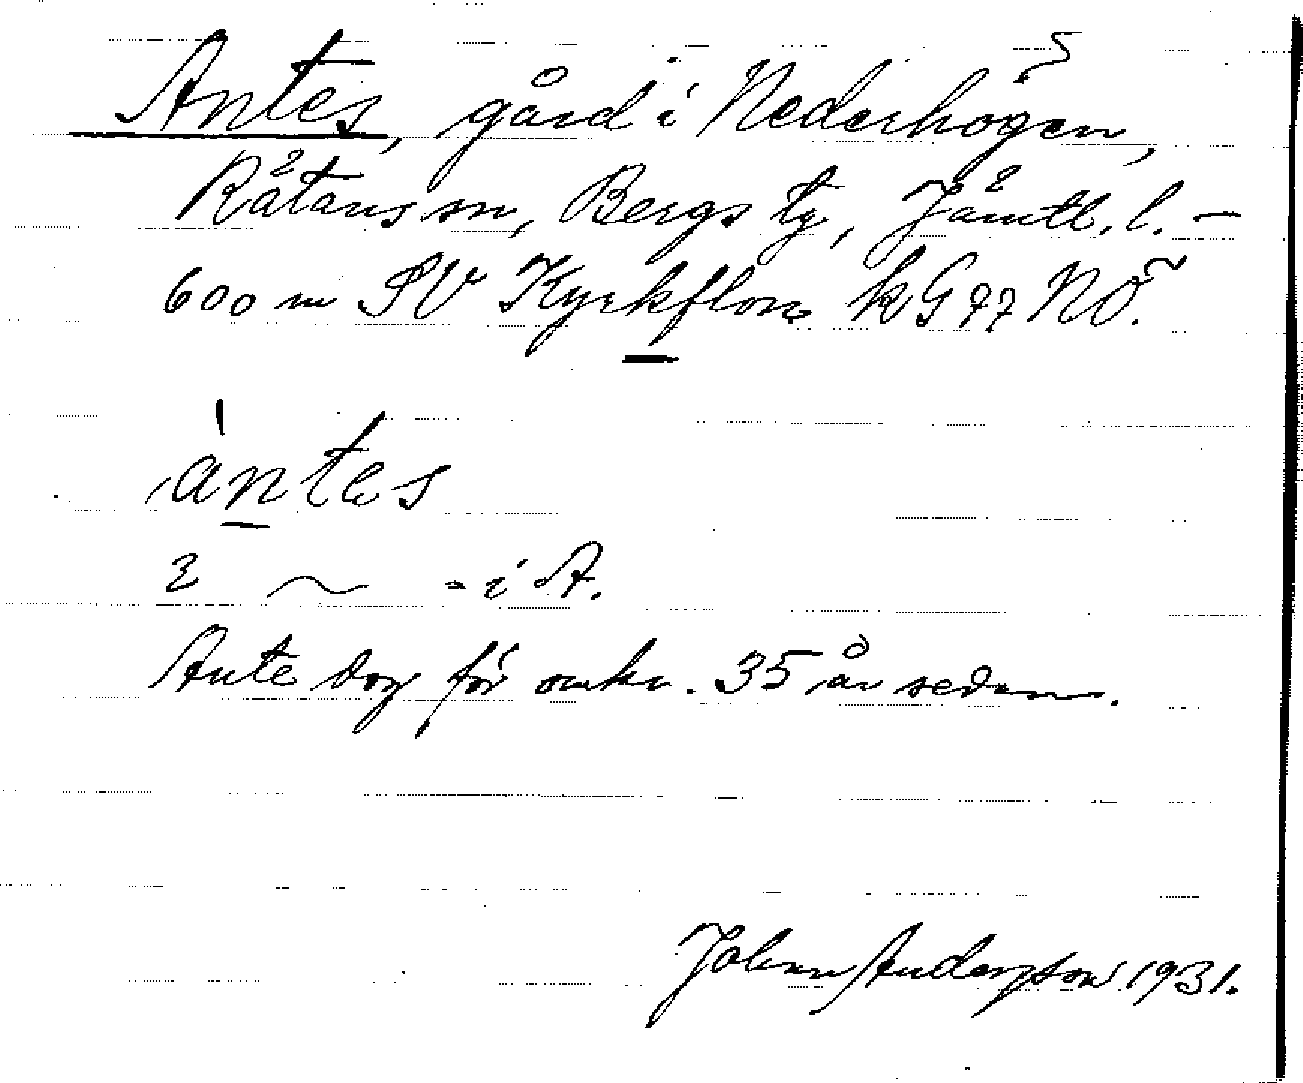 Antes, gård i Nederhögen,
Rätans sn, Bergs tg, Jämtl. l. –
600 m SV Kyrkflon k G 77 NÖ.
ántes
2 ~ - i A.
Ante dog för omkr. 35 år sedan.
Johan Andersson 1931.